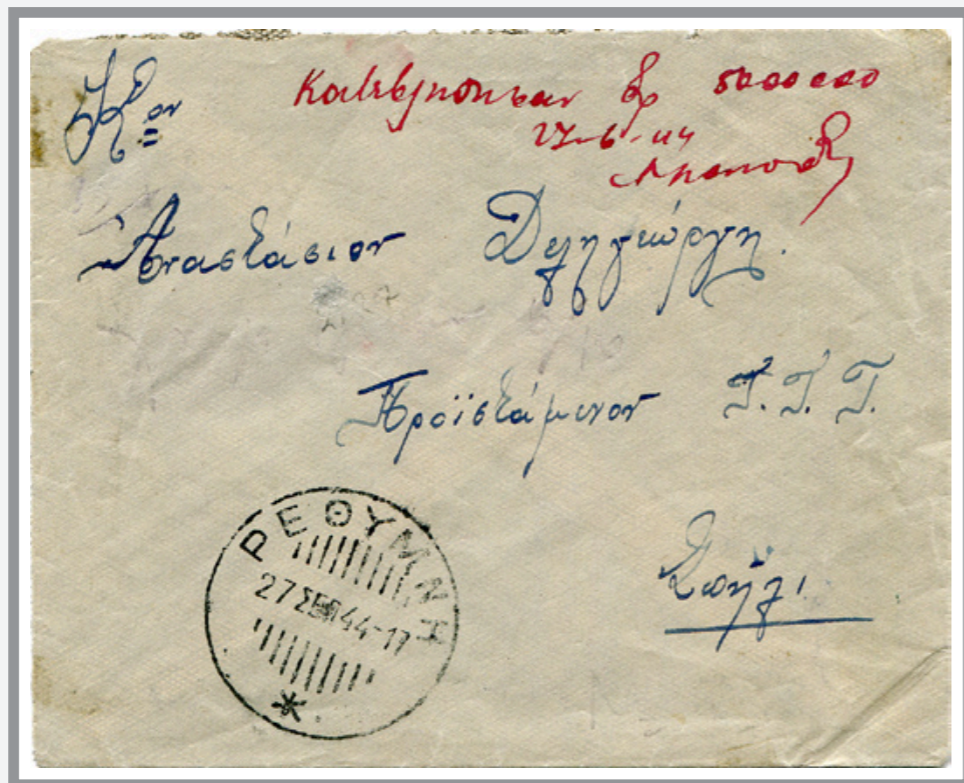 Κον
Κατεβλήθησαν δρ 5000000
27-6-44
Αναστάσιον Δεληγεώργη.
Προϊστάμενον Τ.Τ.Τ.
Σπήλι.
ΡΕΘΥΜΝΗ
27 ΣΕΠ 44-17